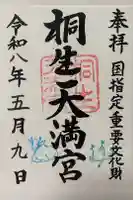 奉拝
国指定重要文化財
桐生天満宮
令和八年五月九日